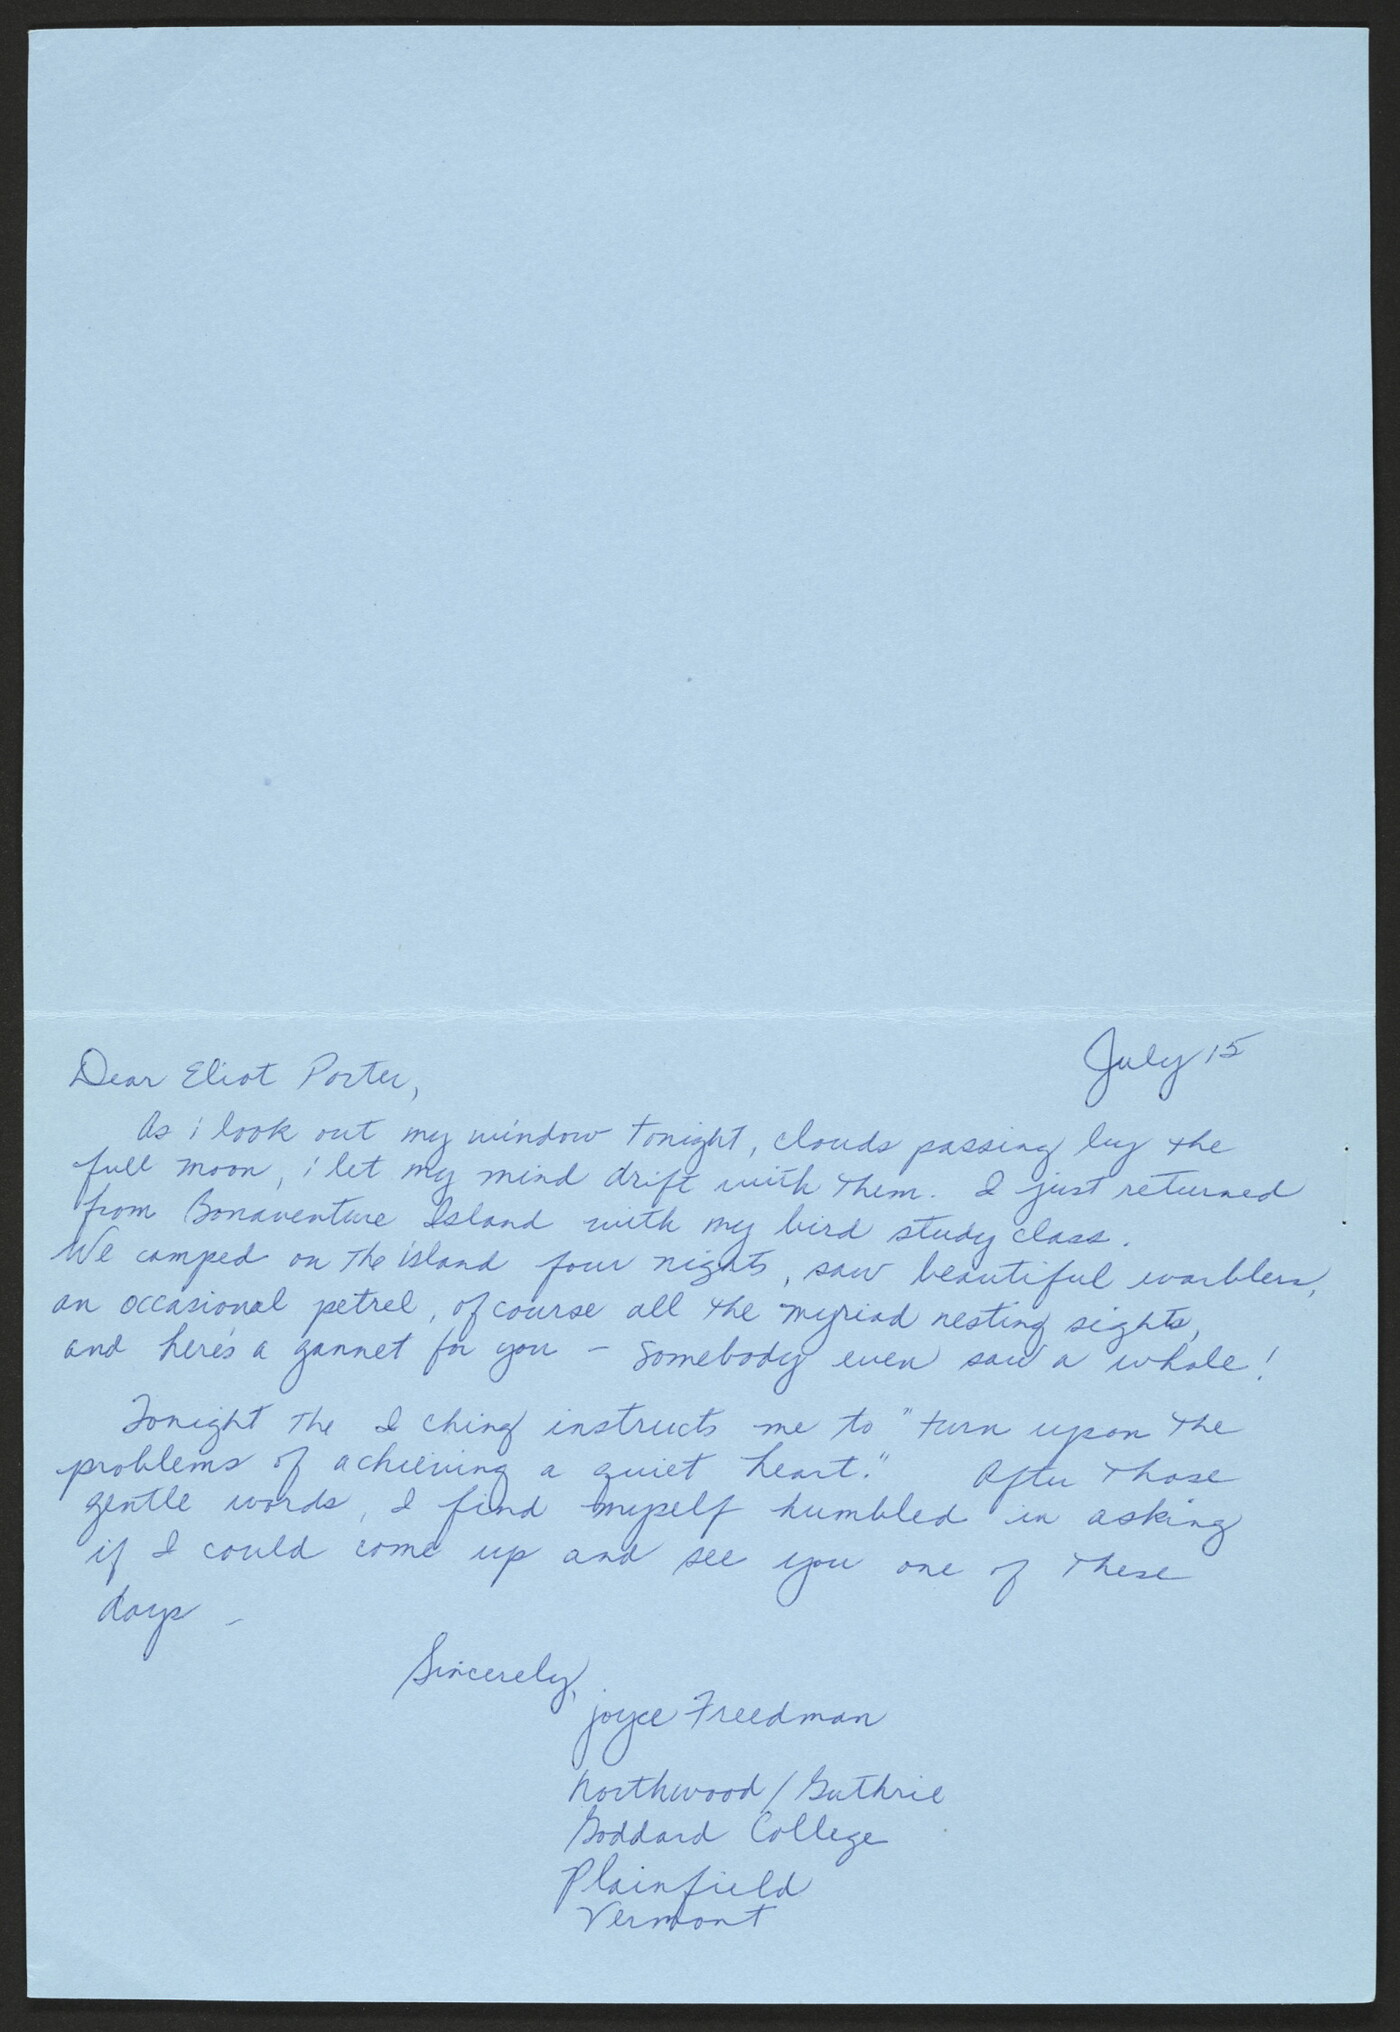 July 15
Dear Eliot Porter,
As i look out my window tonight, clouds passing by the
full moon, i let my mind drift with them. I just returned
from Bonaventure Island with my bird study class.
We camped on the island four nights, saw beautiful warblers,
an occasional petrel, of course all the myriad nesting sights,
and here's a gannet for you – somebody even saw a whale!
Tonight the I ching instructs me to "turn upon the
problems of achieving a quiet heart." After those
gentle words, I find myself humbled in asking
if I could come up and see you one of these
days –
Sincerely,
joyce Freedman
Northwood / Guthrie
Goddard College
Plainfield
Vermont